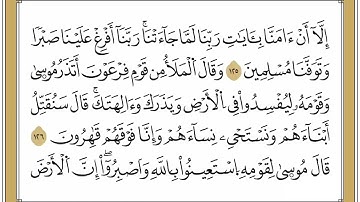 إِلَّآ أَنْ ءَامَنَّا بِـَٔايَٰتِ رَبِّنَا لَمَّا جَآءَتْنَا ۚ رَبَّنَآ أَفْرِغْ عَلَيْنَا صَبْرًا
وَتَوَفَّنَا مُسْلِمِينَ ١٢٥ وَقَالَ ٱلْمَلَأُ مِن قَوْمِ فِرْعَوْنَ أَتَذَرُ مُوسَىٰ
وَقَوْمَهُۥ لِيُفْسِدُوا۟ فِى ٱلْأَرْضِ وَيَذَرَكَ وَءَالِهَتَكَ ۚ قَالَ سَنُقَتِّلُ
أَبْنَآءَهُمْ وَنَسْتَحْىِۦ نِسَآءَهُمْ وَإِنَّا فَوْقَهُمْ قَٰهِرُونَ ١٢٦
قَالَ مُوسَىٰ لِقَوْمِهِ ٱسْتَعِينُوا۟ بِٱللَّهِ وَٱصْبِرُوٓا۟ ۖ إِنَّ ٱلْأَرْضَ